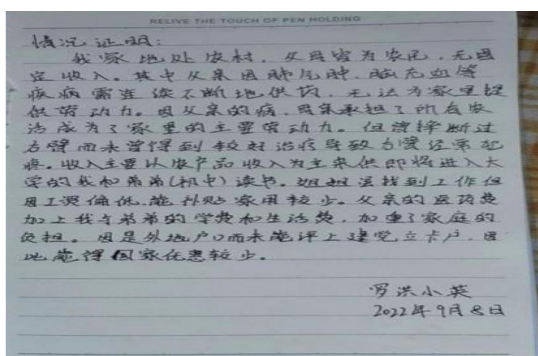 RELIVE THE TOUCH OF PEN HOLDING
情况证明:
我家地处农村，父母皆为农民，无固
定收入。其中父亲因肺气肿，脑充血等
疾病需连续不断地供药，无法为家里提
供劳动力。因父亲的病，母亲承担了所有农
活成为了家里的主要劳动力。但曾摔断过
右臂而未曾得到较好治疗导致右臂经常犯
疼。收入主要以农产品收入为主来供即将进入大
学的我和弟弟(初中)读书。姐姐虽找到工作但
因工资偏低，能补贴家用较少。父亲的医药费
加上我与弟弟的学费和生活费，加重了家庭的
负担。因是外地户口而未能评上建党立卡户，因
此能得国家优惠较少。
罗洪小英
2022年9月8日